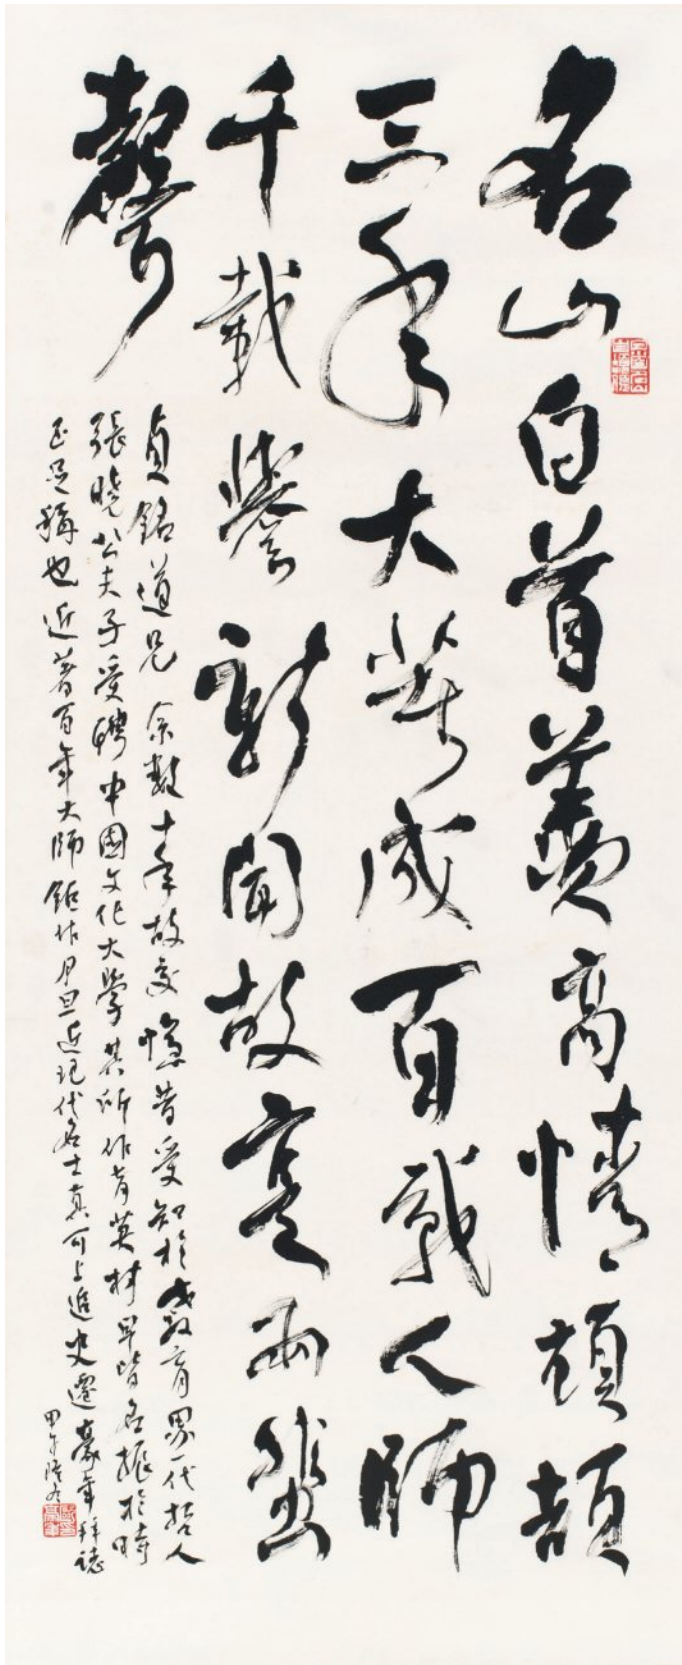 名山白首羨高情頏頡
三年大著成百戰人師
千載譽新聞故實兩蜚
聲
貞銘道兄余數十年故交憶昔受知於教育界一代哲人
張曉公夫子受聘中國文化大學其所作育英材早皆名振於時
足稱也近著百年大師鉅作月旦近現代名士真可上追史遷豪年拜誌
甲午隆冬